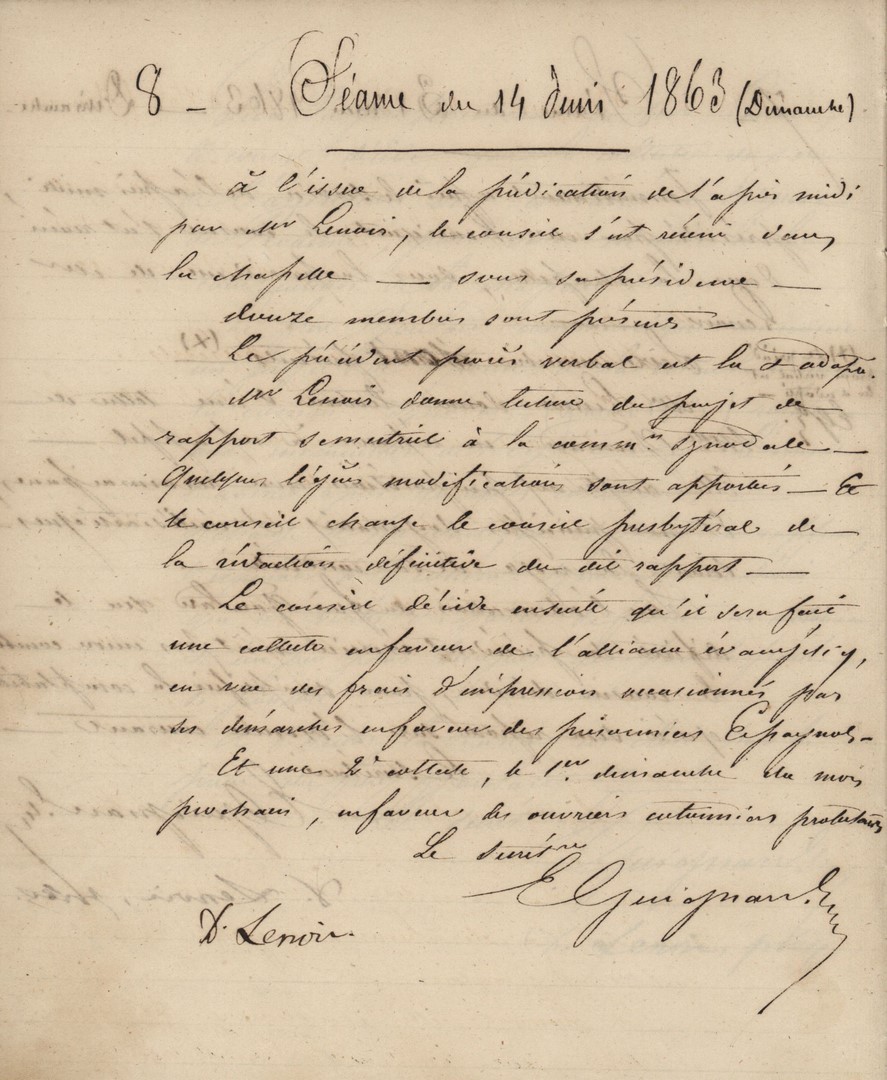 8 — Séance du 14 Juin 1863 (Dimanche)
à l'issue de la prédication de l'après midi
par Mr Lenoir, le conseil s'est réuni dans
la chapelle — sous sa présidence —
douze membres sont présents —
Le précédent procès verbal est lu & adopté.
Mr Lenoir donne lecture du projet de
rapport semestriel à la commn. synodale —
Quelques légères modifications sont apportées — Et
le conseil charge le conseil presbytéral de
la rédaction définitive du dit rapport —
Le conseil décide ensuite qu'il sera fait
une collecte en faveur de l'alliance évangélique,
en vue des frais d'impression occasionnés par
ses démarches en faveur des prisonniers Espagnols —
Et une 2e collecte, le 1er. dimanche du mois
prochain, en faveur des ouvriers cotonniers protestants
Le secrétre
E Guignard
D. Lenoir.